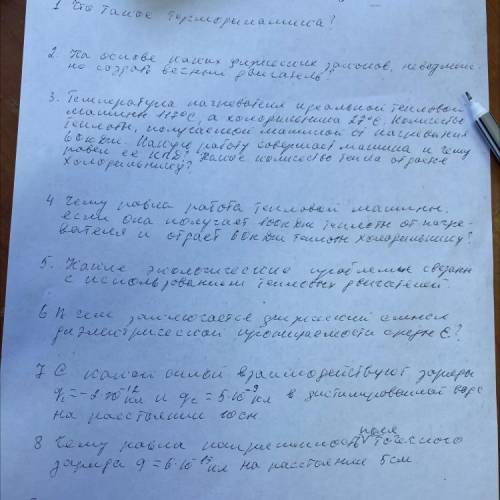 1 Что такое термодинамика?
2. На основе каких физических законов, невозмож-
но создать вечный двигатель?
3. Температура нагревателя идеальной тепловой
машины 117°С, а холодильника 27°С. Количество
теплоты, получаемой машиной от нагревателя
60 кДж. Какую работу совершает машина и чему
равен ее КПД? Какое количество тепла отдается
холодильнику?
4 Чему равна работа тепловой машины,
если она получает 100 кДж теплоты от нагре-
вателя и отдает 60 кДж теплоты холодильнику?
5. Какие экологические проблемы связаны
с использованием тепловых двигателей.
6 В чем заключается физический смысл
диэлектрической проницаемости среды Є?
7 С какой силой взаимодействуют заряды
q₁=-2·10⁻¹² Кл и q₂=5·10⁻⁹ Кл в дистилированной воде
на расстоянии 10см.
8 Чему равна напряженность поля точечного
заряда q=6·10⁻¹⁵ Кл на расстояние 5см